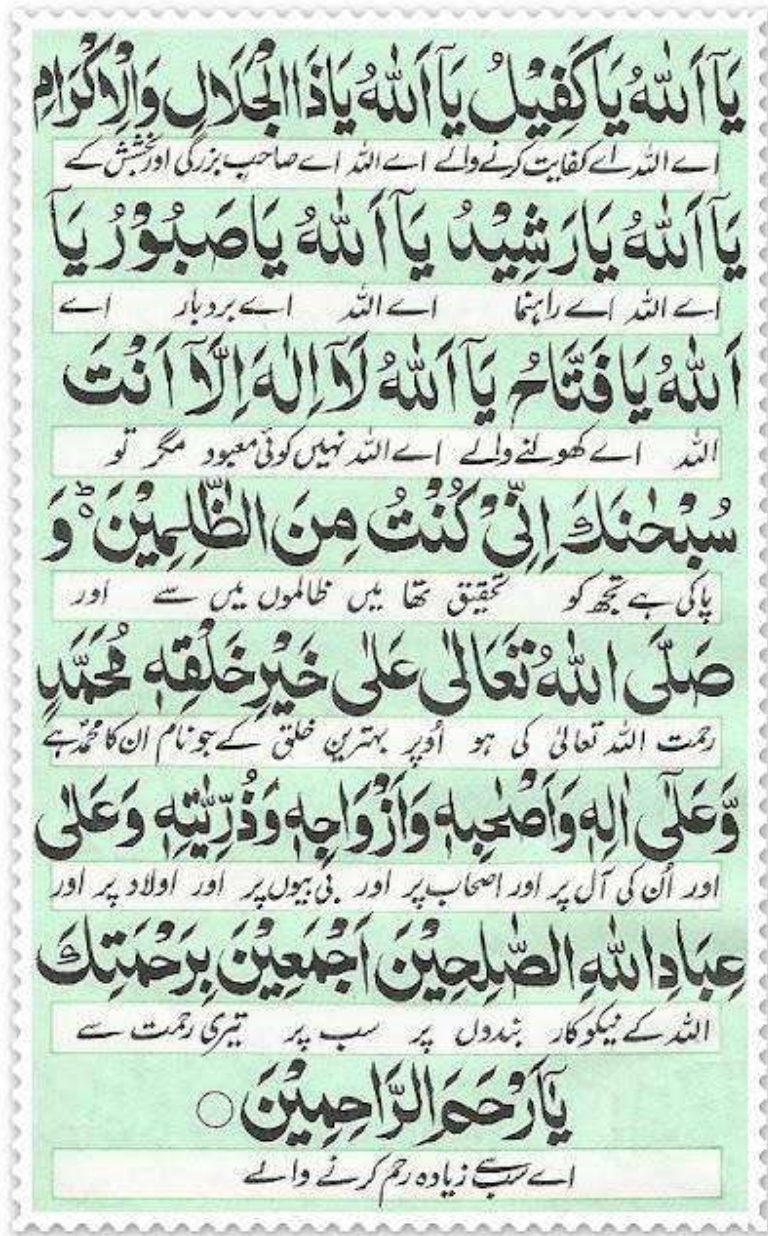 يَآ اَللّٰهُ يَا كَفِيْلُ يَآ اَللّٰهُ يَا ذَا الْجَلَالِ وَالْاِكْرَامِ
اے اللہ اے کفایت کرنے والے اے اللہ اے صاحب بزرگی اور بخشش کے
يَآ اَللّٰهُ يَا رَشِيْدُ يَآ اَللّٰهُ يَا صَبُوْرُ يَآ
اے اللہ اے راہنما اے اللہ اے بردبار اے
اَللّٰهُ يَا فَتَّاحُ يَآ اَللّٰهُ لَآ اِلٰهَ اِلَّآ اَنْتَ
اللہ اے کھولنے والے اے اللہ نہیں کوئی معبود مگر تو
سُبْحٰنَكَ اِنِّىْ كُنْتُ مِنَ الظّٰلِمِيْنَ ؕ وَ
پاکی ہے تجھ کو تحقیق تھا میں ظالموں میں سے اور
صَلَّى اللّٰهُ تَعَالٰى عَلٰى خَيْرِ خَلْقِهٖ مُحَمَّدٍ
رحمت اللہ تعالیٰ کی ہو اُوپر بہترین خلق کے جو نام ان کا محمدؐ ہے
وَّعَلٰٓى اٰلِهٖ وَاَصْحٰبِهٖ وَاَزْوَاجِهٖ وَذُرِّيّٰتِهٖ وَعَلٰى
اور اُن کی آل پر اور اصحاب پر اور بی بیوں پر اور اولاد پر اور
عِبَادِ اللّٰهِ الصّٰلِحِيْنَ اَجْمَعِيْنَ بِرَحْمَتِكَ
اللہ کے نیکوکار بندوں پر سب پر تیری رحمت سے
يَآ اَرْحَمَ الرَّاحِمِيْنَ ○
اے سب سے زیادہ رحم کرنے والے